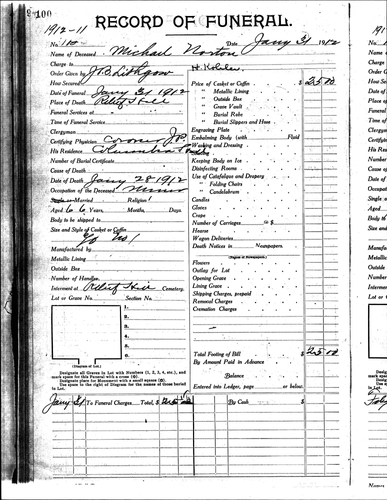 100
RECORD OF FUNERAL.
1912-11
No. Date Jany 31 1912
Name of Deceased Michael Norton
Charge to H. Kohler
Order Given by J.B. Lithgow
How Secured
Date of Funeral Jany 31 1912
Place of Death Relief Hill
Funeral Services at
Time of Funeral Service
Clergyman
Certifying Physician Coroner J.P.
His Residence Columbia
Number of Burial Certificate
Cause of Death
Date of Death Jany 28 1912
Occupation of the Deceased Miner
Single or Married Religion
Aged 66 Years, Months, Days.
Body to be shipped to
Size and Style of Casket or Coffin
No 1
Manufactured by
Metalic Lining
Outside Box
Number of Handles
Interment at Relief Hill Cemetery.
Lot or Grave No. Section No.
1.
2.
3.
4.
5.
6.
(Diagram of Lot.)
Designate all Graves in Lot with Numbers (1, 2, 3, 4, etc.), and
mark space for this Funeral with a cross
Designate place for Monument with a small square
Use space to the right of Diagram for the names of those buried
in Lot.
Price of Casket or Coffin $ 25 00
" Metalic Lining
" Outside Box
" Grave Vault
" Burial Robe
" Burial Slippers and Hose
Engraving Plate
Embalming Body (with Fluid
Washing and Dressing
Shaving
Keeping Body on Ice
Disinfecting Rooms
Use of Catafalque and Drapery
" Folding Chairs
" Candelabrum
Candles
Gloves
Crape
Number of Carriages @ $
Hearse
Wagon Deliveries
Death Notices in Newspapers.
(Names of Newspapers.)
Flowers
Outlay for Lot
Opening Grave
Lining Grave
Shipping Charges, prepaid
Removal Charges
Cremation Charges
Total Footing of Bill $ 25 00
By Amount Paid in Advance
Balance
Entered into Ledger, page or below.
Jany 31 To Funeral Charges Total, $ 25 00 By Cash